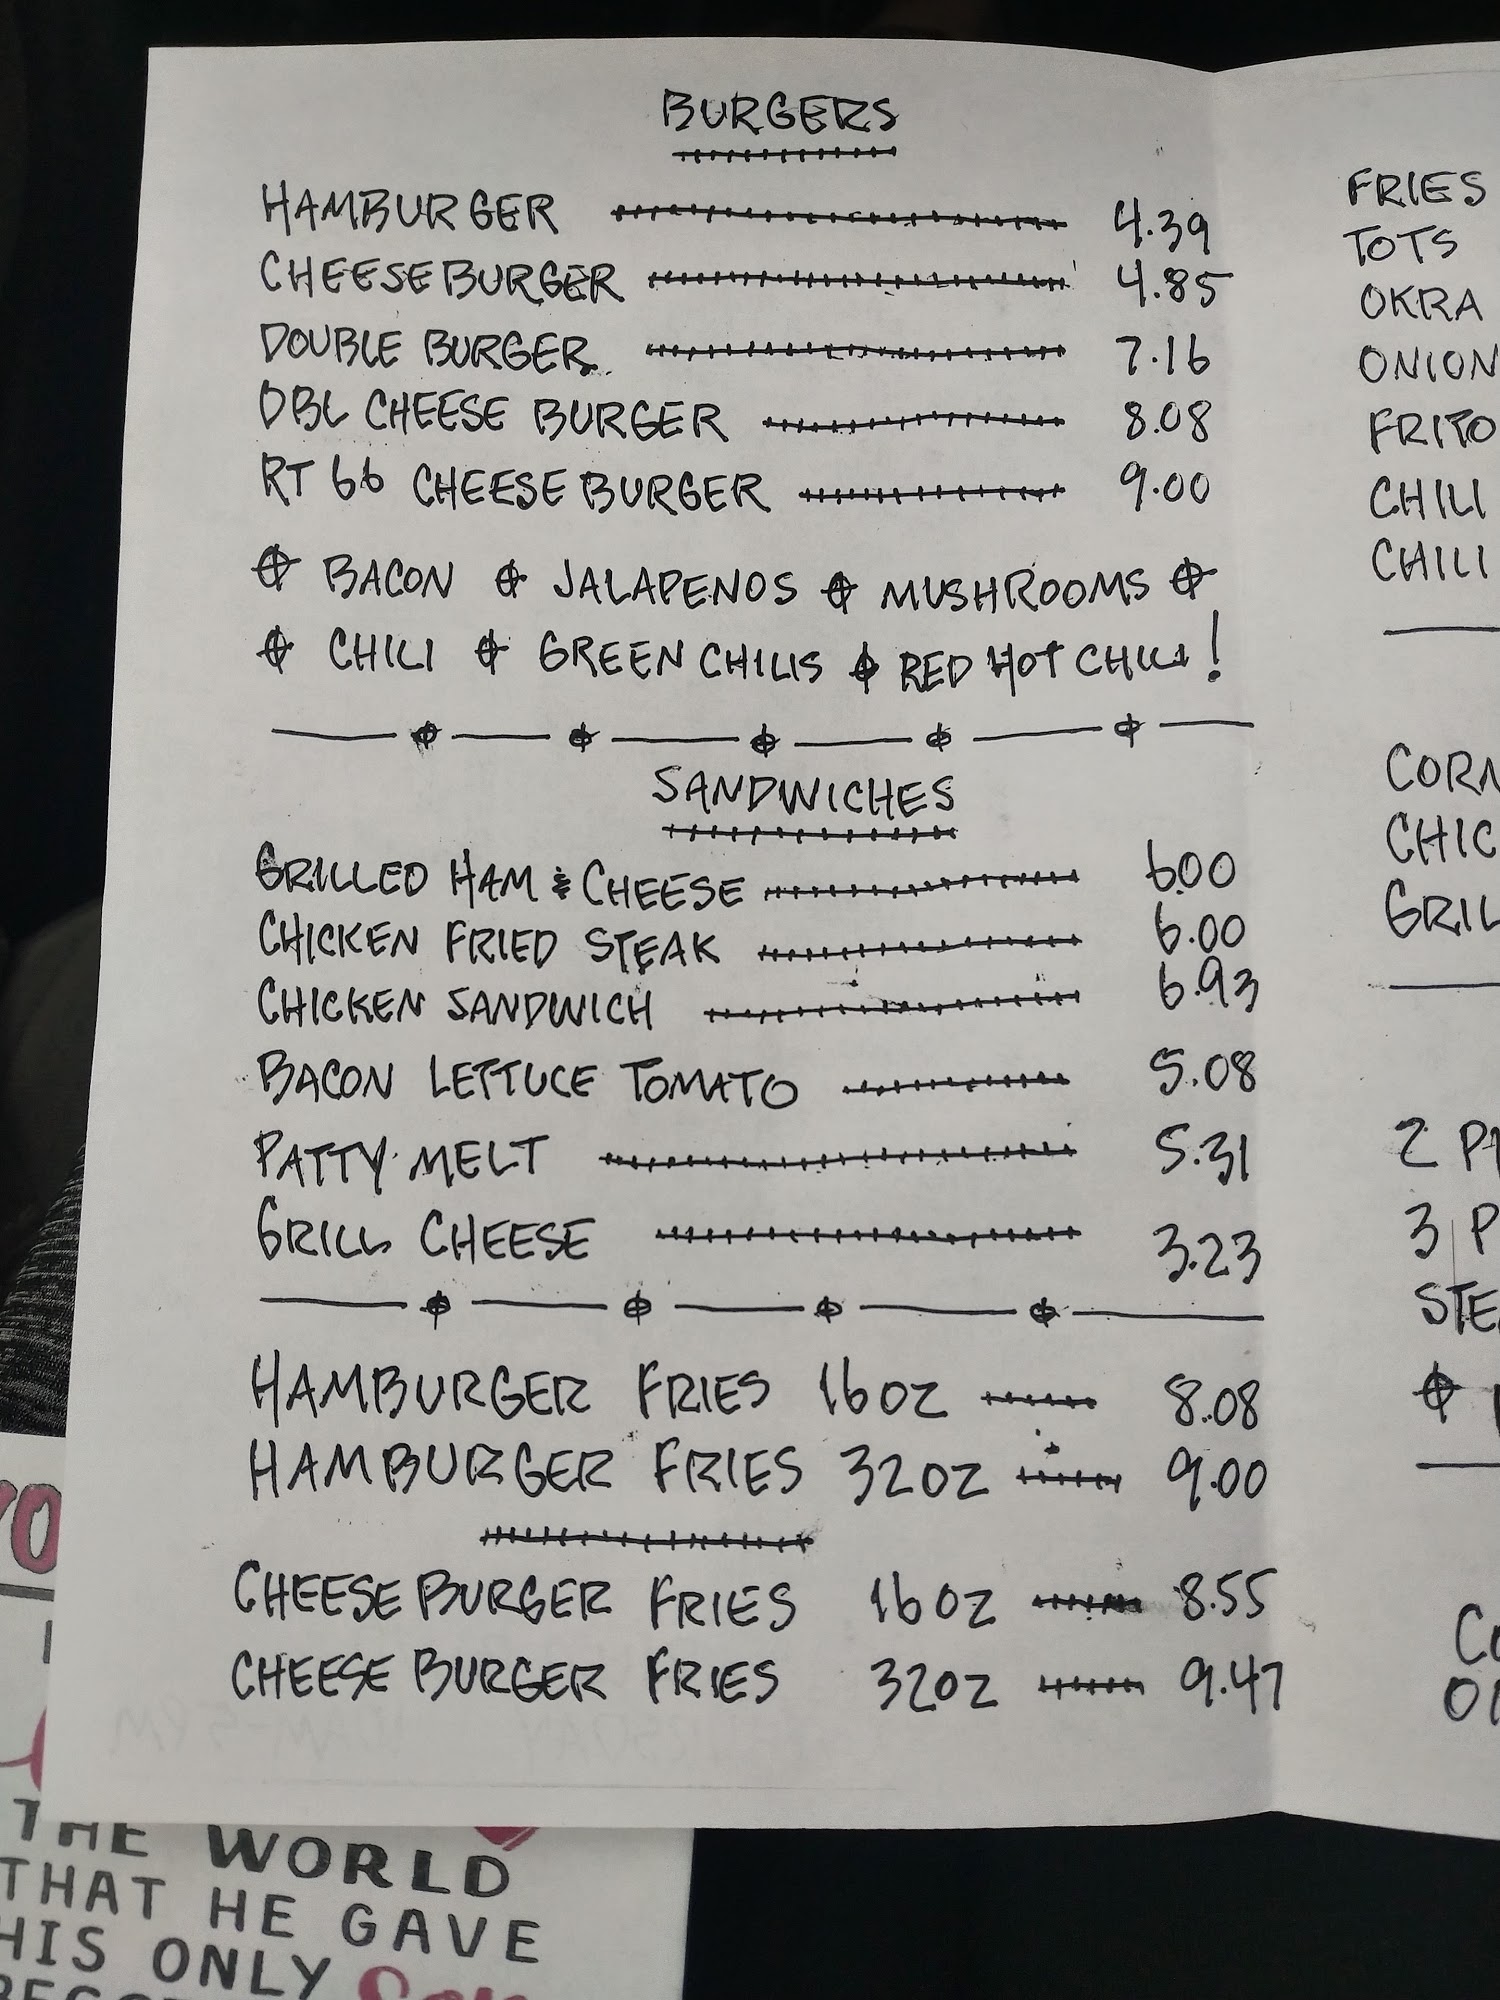 BURGERS
HAMBURGER 4.39
CHEESEBURGER 4.85
DOUBLE BURGER 7.16
DBL CHEESE BURGER 8.08
RT 66 CHEESE BURGER 9.00
BACON JALAPENOS MUSHROOMS
CHILI GREEN CHILIS RED HOT CHILI!
SANDWICHES
GRILLED HAM & CHEESE 6.00
CHICKEN FRIED STEAK 6.00
CHICKEN SANDWICH 6.93
BACON LETTUCE TOMATO 5.08
PATTY MELT 5.31
GRILL CHEESE 3.23
HAMBURGER FRIES 16OZ 8.08
HAMBURGER FRIES 32OZ 9.00
CHEESE BURGER FRIES 16OZ 8.55
CHEESE BURGER FRIES 32OZ 9.47
FRIES
TOTS
OKRA
ONION
FRITO
CHILI
CHILI
2
3
THE WORLD
THAT HE GAVE
HIS ONLY